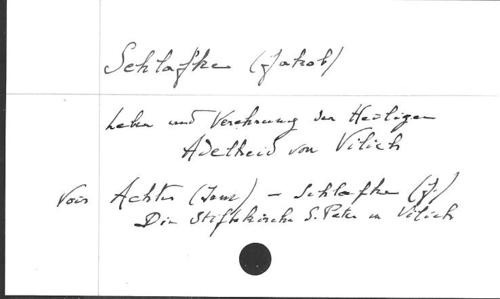 Schlafke (Jakob)
Leben und Verehrung der Heiligen
Adelheid von Vilich
Voir Achter (Irm) - Schlafke (J.)
Die Stiftskirche S. Peter in Vilich